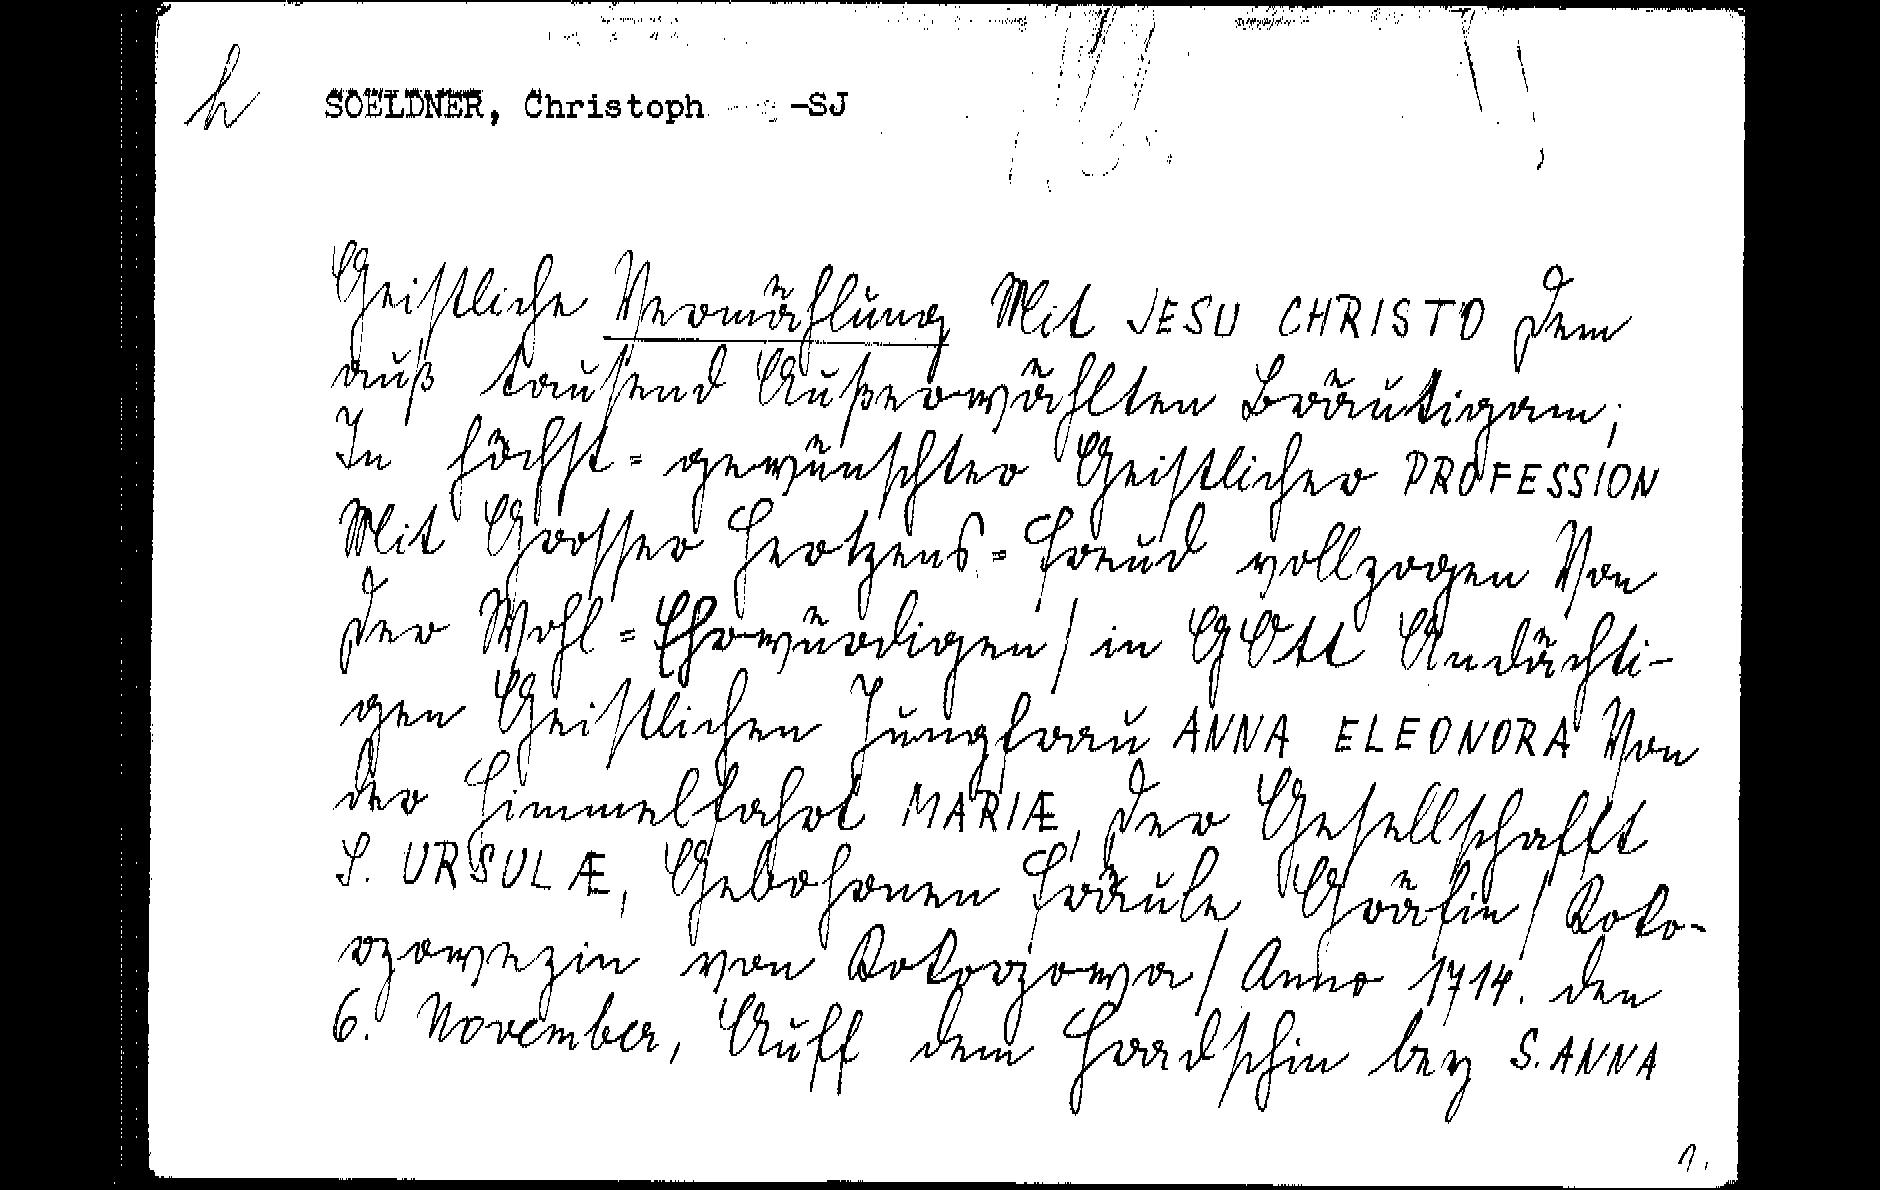 h SOELDNER, Christoph -SJ
Geistliche Vermählung Mit JESU CHRISTO Dem
auß tausend Außerwählten Bräutigam;
In höchst= gewünschter Geistlicher PROFESSION
Mit Grosser Hertzens=Freud vollzogen Von
Der Wohl=Ehrwürdigen/ in GOtt Andächti-
gen Geistlichen Jungfrau ANNA ELEONORA Von
der Himmelfahrt MARIÆ, Der Gesellschafft
S. URSULÆ, Gebohrnen Fräule Gräfin/ Koko-
rzowezin von Kokorzowa/ Anno 1714. den
6. November, Auff dem Hradschin bey S. ANNA
1.